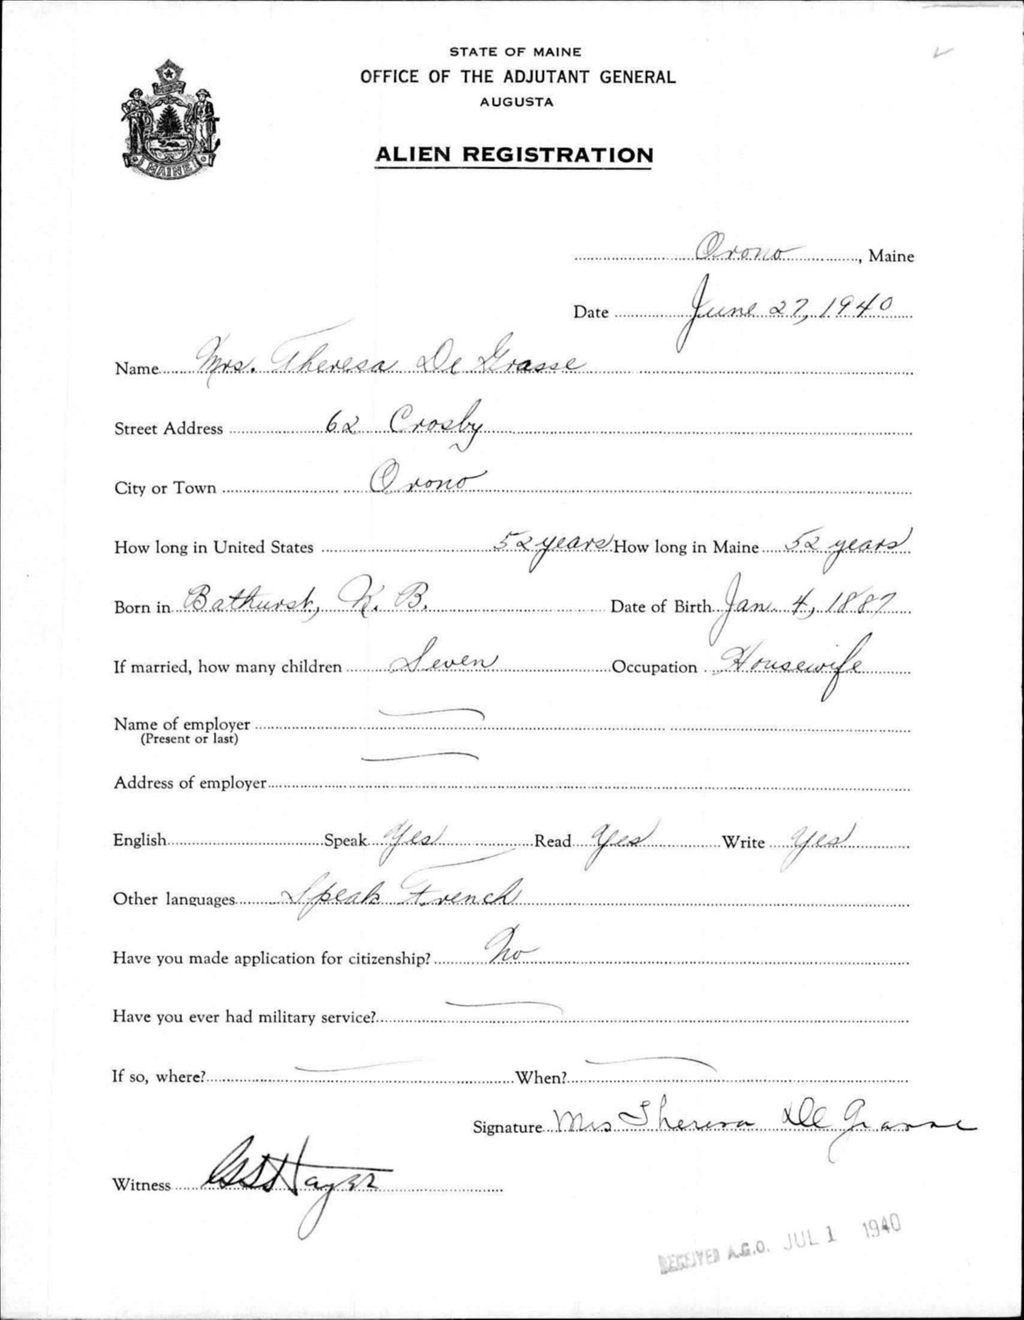 STATE OF MAINE
OFFICE OF THE ADJUTANT GENERAL
AUGUSTA
ALIEN REGISTRATION
MAINE
Orono, Maine
Date June 27, 1940
Name Mrs. Theresa De Grasse
Street Address 62 Crosby
City or Town Orono
How long in United States 52 years How long in Maine 52 years
Born in Bathurst, N. B. Date of Birth Jan. 4, 1887
If married, how many children Seven Occupation Housewife
Name of employer
(Present or last)
Address of employer
English Speak Yes Read Yes Write Yes
Other languages Speak French
Have you made application for citizenship? No
Have you ever had military service?
If so, where? When?
Signature Mrs Theresa De Grasse
Witness
RECEIVED A.G.O. JUL 1 1940